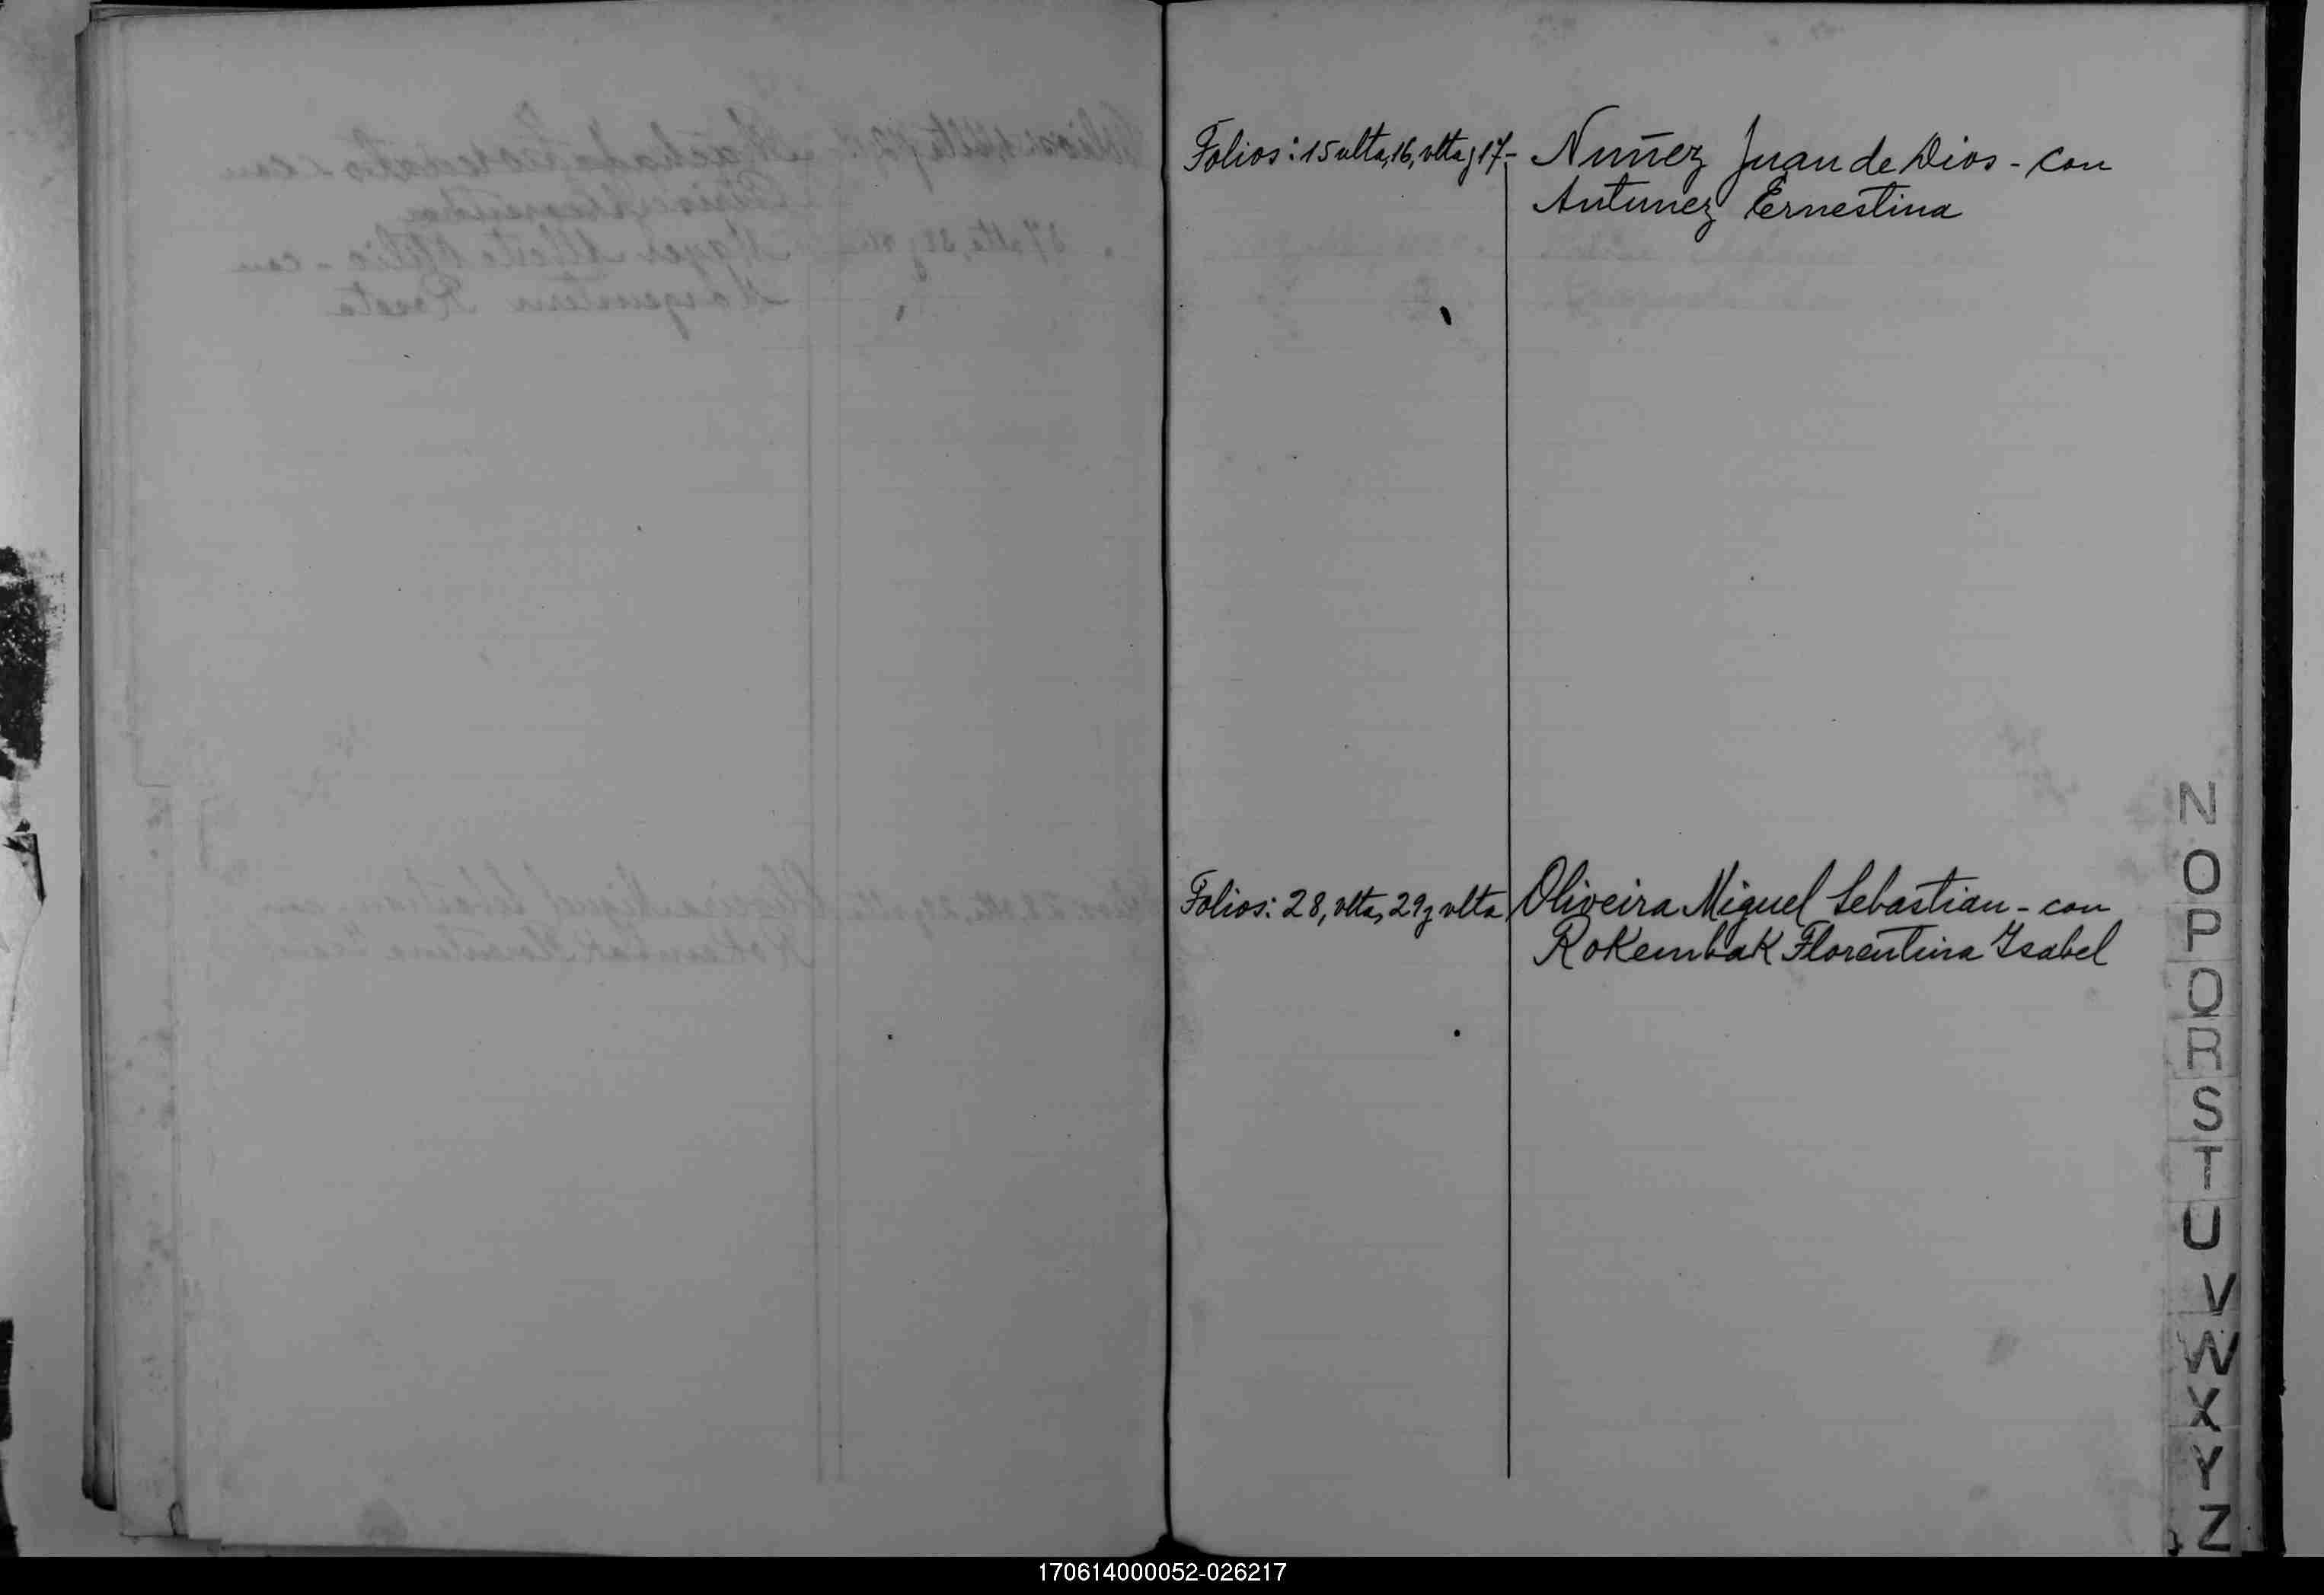 Folios: 15 vlta, 16, vlta y 17- Nuñez Juan de Dios - con
Antunez Ernestina
Folios: 28, vlta, 29 y vlta Oliveira Miguel Sebastian - con
RoKembaK Florentina Isabel
N
O
P
Q
R
S
T
U
V
W
X
Y
Z
170614000052-026217